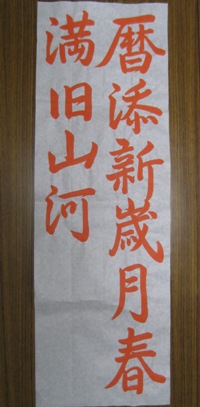 暦添新歳月春
満旧山河